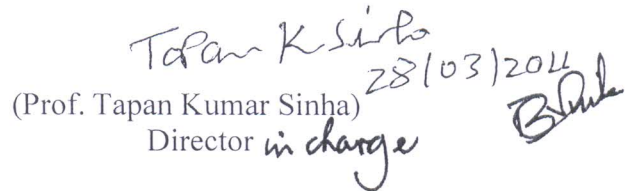 Tapan K Sinha
28/03/2011
(Prof. Tapan Kumar Sinha)
Director in charge